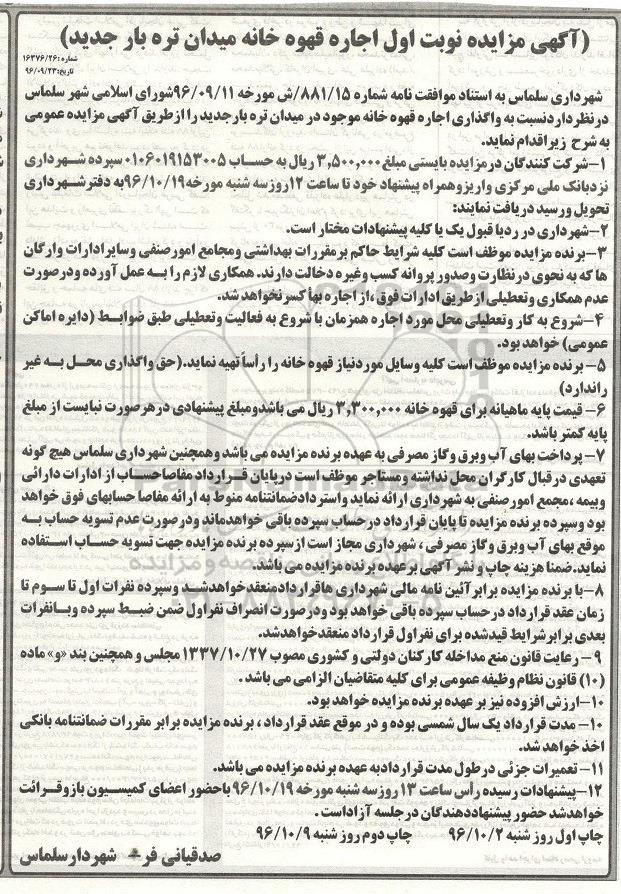 (آگهی مزایده نوبت اول اجاره قهوه خانه میدان تره بار جدید)
شماره:۱۶۳۷۶/۲۶
تاریخ:۹۶/۰۹/۲۳
شهرداری سلماس به استناد موافقت نامه شماره ۸۸۱/۱۵/ش مورخه ۹۶/۰۹/۱۱شورای اسلامی شهر سلماس
درنظرداردنسبت به واگذاری اجاره قهوه خانه موجود در میدان تره بارجدید را ازطریق آگهی مزایده عمومی
به شرح زیراقدام نماید.
۱-شرکت کنندگان درمزایده بایستی مبلغ۳,۵۰۰,۰۰۰ ریال به حساب ۰۱۰۶۰۱۹۱۵۳۰۰۵سپرده شهرداری
نزدبانک ملی مرکزی واریزوهمراه پیشنهاد خود تا ساعت ۱۲روزسه شنبه مورخه۹۶/۱۰/۱۹به دفترشهرداری
تحویل ورسید دریافت نمایند:
۲-شهرداری در ردیا قبول یک یا کلیه پیشنهادات مختار است.
۳-برنده مزایده موظف است کلیه شرایط حاکم برمقررات بهداشتی ومجامع امورصنفی وسایرادارات وارگان
ها که به نحوی در نظارت وصدور پروانه کسب وغیره دخالت دارند. همکاری لازم را به عمل آورده ودرصورت
عدم همکاری وتعطیلی ازطریق ادارات فوق ،از اجاره بها کسرنخواهد شد.
۴-شروع به کار وتعطیلی محل مورد اجاره همزمان با شروع به فعالیت وتعطیلی طبق ضوابط (دایره اماکن
عمومی) خواهد بود.
۵- برنده مزایده موظف است کلیه وسایل موردنیاز قهوه خانه را رأساً تهیه نماید.(حق واگذاری محل به غیر
راندارد)
۶- قیمت پایه ماهیانه برای قهوه خانه ۳,۳۰۰,۰۰۰ ریال می باشدومبلغ پیشنهادی درهرصورت نبایست از مبلغ
پایه کمتر باشد.
۷- پرداخت بهای آب وبرق وگاز مصرفی به عهده برنده مزایده می باشد وهمچنین شهرداری سلماس هیچ گونه
تعهدی درقبال کارگران محل نداشته ومستاجر موظف است درپایان قرارداد مفاصاحساب از ادارات دارائی
وبیمه ،مجمع امور صنفی به شهرداری ارائه نماید واسترداد ضمانتنامه منوط به ارائه مفاصا حسابهای فوق خواهد
بود وسپرده برنده مزایده تا پایان قرارداد درحساب سپرده باقی خواهدماند ودرصورت عدم تسویه حساب به
موقع بهای آب وبرق وگاز مصرفی ، شهرداری مجاز است ازسپرده برنده مزایده جهت تسویه حساب استفاده
نماید.ضمنا هزینه چاپ و نشر آگهی برعهده برنده مزایده می باشد.
۸-با برنده مزایده برابر آئین نامه مالی شهرداری هاقراردادمنعقدخواهدشد وسپرده نفرات اول تا سوم تا
زمان عقد قرارداد در حساب سپرده باقی خواهد بود ودرصورت انصراف نفراول ضمن ضبط سپرده وبانفرات
بعدی برابرشرایط قیدشده برای نفراول قرارداد منعقدخواهدشد.
۹- رعایت قانون منع مداخله کارکنان دولتی و کشوری مصوب ۱۳۳۷/۱۰/۲۷ مجلس و همچنین بند «و» ماده
(۱۰) قانون نظام وظیفه عمومی برای کلیه متقاضیان الزامی می باشد .
۱۰-ارزش افزوده نیز بر عهده برنده مزایده خواهد بود.
۱۰- مدت قرارداد یک سال شمسی بوده و در موقع عقد قرارداد ، برنده مزایده برابر مقررات ضمانتنامه بانکی
اخذ خواهد شد.
۱۱- تعمیرات جزئی درطول مدت قراردادبه عهده برنده مزایده می باشد.
۱۲-پیشنهادات رسیده رأس ساعت ۱۳ روزسه شنبه مورخه ۹۶/۱۰/۱۹ باحضور اعضای کمیسیون بازوقرائت
خواهدشد حضور پیشنهاددهندگان درجلسه آزاداست .
چاپ اول روز شنبه ۹۶/۱۰/۲ چاپ دوم روز شنبه ۹۶/۱۰/۹
صدقیانی فر- شهردارسلماس